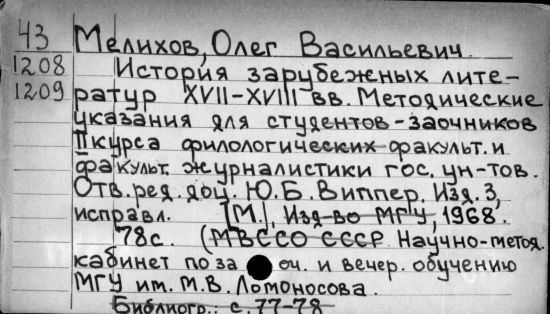 43 Мелихов, Олег Васильевич.
1208 История зарубежных лите-
1209 ратур XVII-XVIII вв. Методические
указания для студентов-заочников
II курса филологических факульт. и
факульт. журналистики гос. ун-тов.
Отв. ред. доц. Ю.Б. Виппер. Изд. 3,
исправл. [М.], Изд-во МГУ, 1968.
78с. (МВССО СССР. Научно-метод.
кабинет по за оч. и вечер. обучению
МГУ им. М.В. Ломоносова.
Библиогр.: с. 77-78